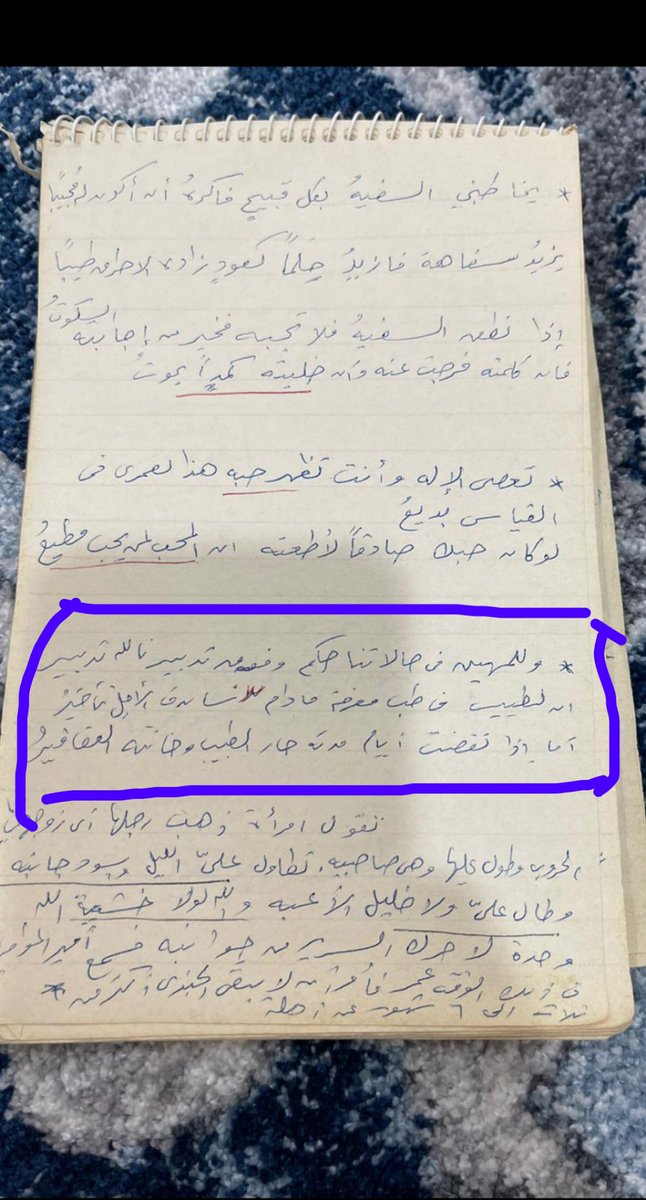 * يخاطبني السفيهُ بكل قبيحٍ فاكرهُ أن أكون له مُجيبًا
يزيدُ سفاهة فازيدُ حِلمًا كعودٍ زاده الاحراق طيبًا
إذا نطق السفيهُ فلا تجبه فخير من إجابته السكوتُ
فان كلمته فرجت عنه وان خليته كمدًا يموتُ
* تعصى الإله وأنت تظهر حبه هذا لعمرى فى
القياس بديعُ
لو كان حبك صادقًا لأطعته ان المحب لمن يحب مطيعُ
* وللمهيمن فى حالاتنا حكم وفوق تدبيرنا لله تدبير
ان لطبيب فى طب معرفة مادام للانسان فى الأجل تأخيرُ
أما إذا تقضت أيام مدته حار الطبيب وخانته العقاقيرُ
تقول امرأة ذهب رجلها أى زوجها
الحروب وطول عليها وهى صاحبيه. تطاول علىّ الليل وسود جانبه
وطال علىّ ولا خليل الأعبه والله لولا خشية الله
وحدة لاحرك السرير من جوانبه فسمع أمير
فى ذلك الوقت عمر فأمر أن لا يبقى الجندى أكثر من *
ثلاث الى ٦ شهور عن أهله